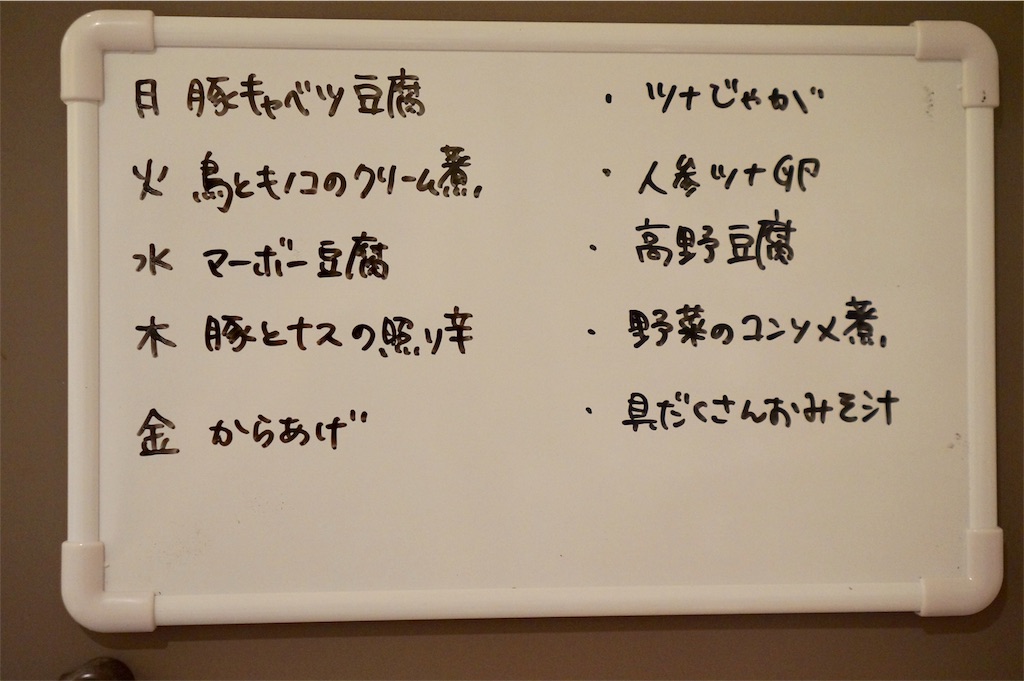 月 豚キャベツ豆腐
火 鳥とキノコのクリーム煮
水 マーボー豆腐
木 豚とナスの照り辛
金 からあげ
・ ツナじゃが
・ 人参ツナ卵
・ 高野豆腐
・ 野菜のコンソメ煮
・ 具だくさんおみそ汁